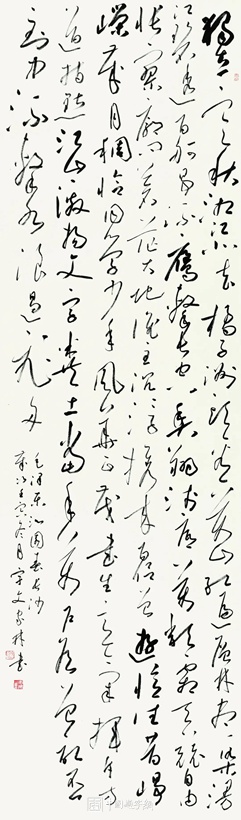 独立寒秋湘江北去橘子洲头看万山红遍层林尽染漫
江碧透百舸争流鹰击长空鱼翔浅底万类霜天竞自由
怅寥廓问苍茫大地谁主沉浮携来百侣曾游忆往昔峥
嵘岁月稠恰同学少年风华正茂书生意气挥斥方
遒指点江山激扬文字粪土当年万户侯曾记否
到中流击水浪遏飞舟
毛泽东沁园春长沙
冬月宋文家林书